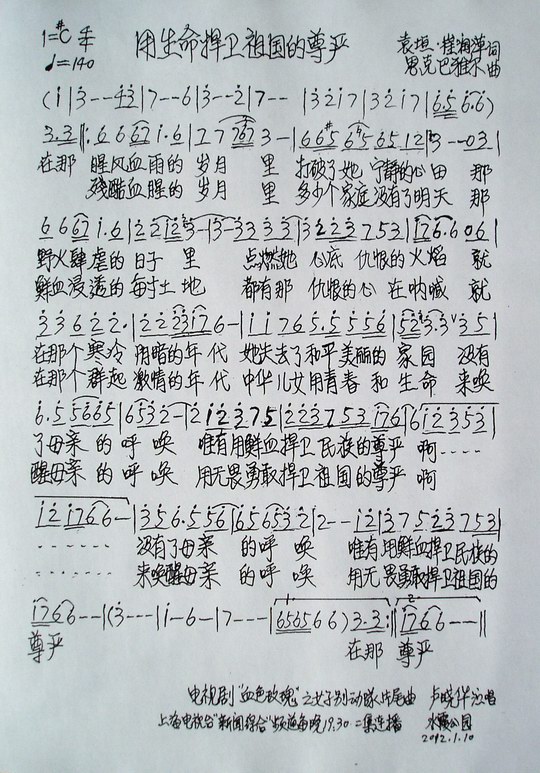 1=#C 4/4 用生命捍卫祖国的尊严 袁垣·崔润萍词
♩=140 思克巴雅尔曲
(i|3--43|7--6|3--2|7--|3217|3217|65 6·6)
33‖:6 6 67 i·6|27 767 3-|665 65 65 12|3--03|
在那 腥风血雨的 岁月 里 打破了她 宁静的心田 那
残酷血腥的 岁月 里 多少个家庭没有了明天 那
6 6 67 i·6|22 123-|3-33 33|3223753|176·606|
野火肆虐的 日子 里 点燃她 心底 仇恨的火焰 就
鲜血浸透的 每寸土地 都有那 仇恨的心 在呐喊 就
33622·|22 23176-|i i 7 6 5·5 556|523·3 35|
在那个寒冷 阴暗的年代 她失去了和平美丽的 家园 没有
在那个群起 激情的年代 中华儿女用青春 和 生命 来唤
6·5 5665|6532-|212375|223753 176|612353|
了母亲 的呼 唤 唯有用鲜血捍卫民族的尊严 啊·····
醒母亲 的呼 唤 用无畏勇敢捍卫祖国的尊严 啊
12 1766-|356·5 56|65 65 32|2--12|37523753|
······ 没有了母亲 的呼 唤 唯有用鲜血捍卫民族的
······ 来唤醒母亲 的呼 唤 用无畏勇敢捍卫祖国的
1766--|(3---|i-6-|7---|656566)33:‖1766--‖
尊严 在那 尊严
电视剧"血色玫瑰"之女子别动队片尾曲 卢晓华记唱
上海电视台"新闻综合"频道每晚19.30二集连播 水霧公园
2012.1.10